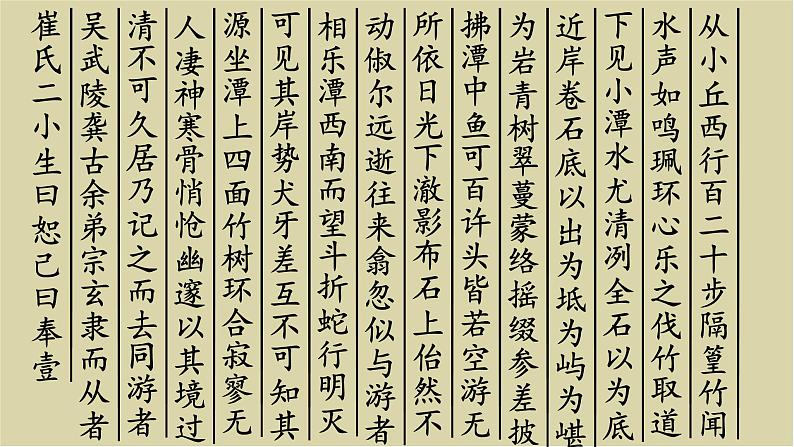 从小丘西行百二十步隔篁竹闻
水声如鸣珮环心乐之伐竹取道
下见小潭水尤清冽全石以为底
近岸卷石底以出为坻为屿为嵁
为岩青树翠蔓蒙络摇缀参差披
拂潭中鱼可百许头皆若空游无
所依日光下澈影布石上佁然不
动俶尔远逝往来翕忽似与游者
相乐潭西南而望斗折蛇行明灭
可见其岸势犬牙差互不可知其
源坐潭上四面竹树环合寂寥无
人凄神寒骨悄怆幽邃以其境过
清不可久居乃记之而去同游者
吴武陵龚古余弟宗玄隶而从者
崔氏二小生曰恕己曰奉壹